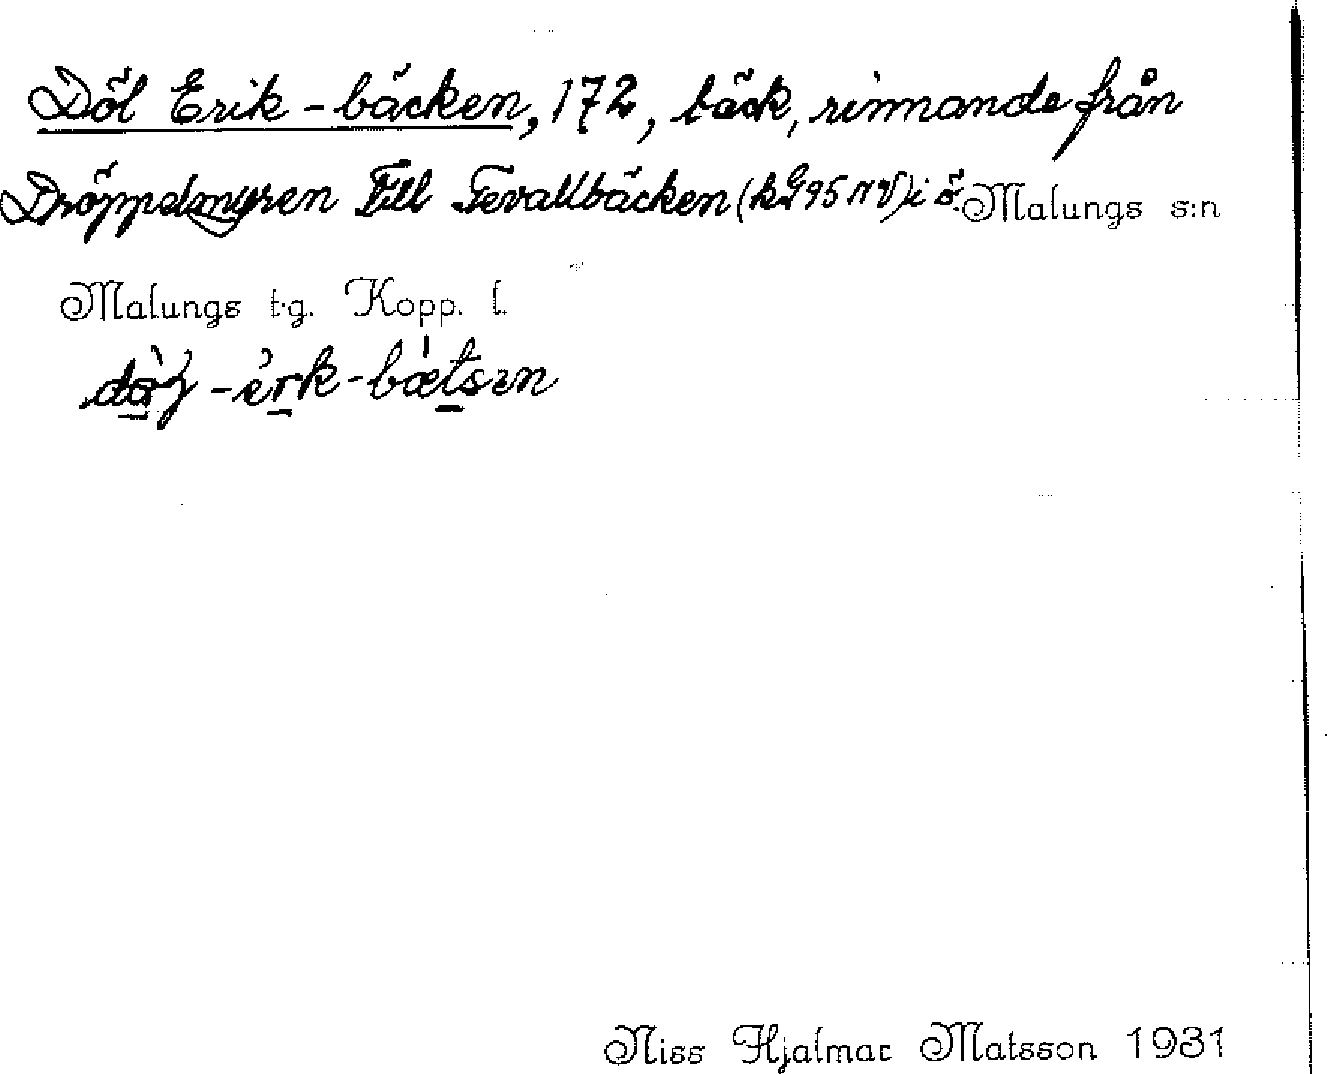 Döl Erik-bäcken, 172, bäck, rinnande från
Dröppelmyren till Tevallbäcken (kG95NV) i ö. Malungs s:n
Malungs t.g. Kopp. l.
Niss Hjalmar Matsson 1931